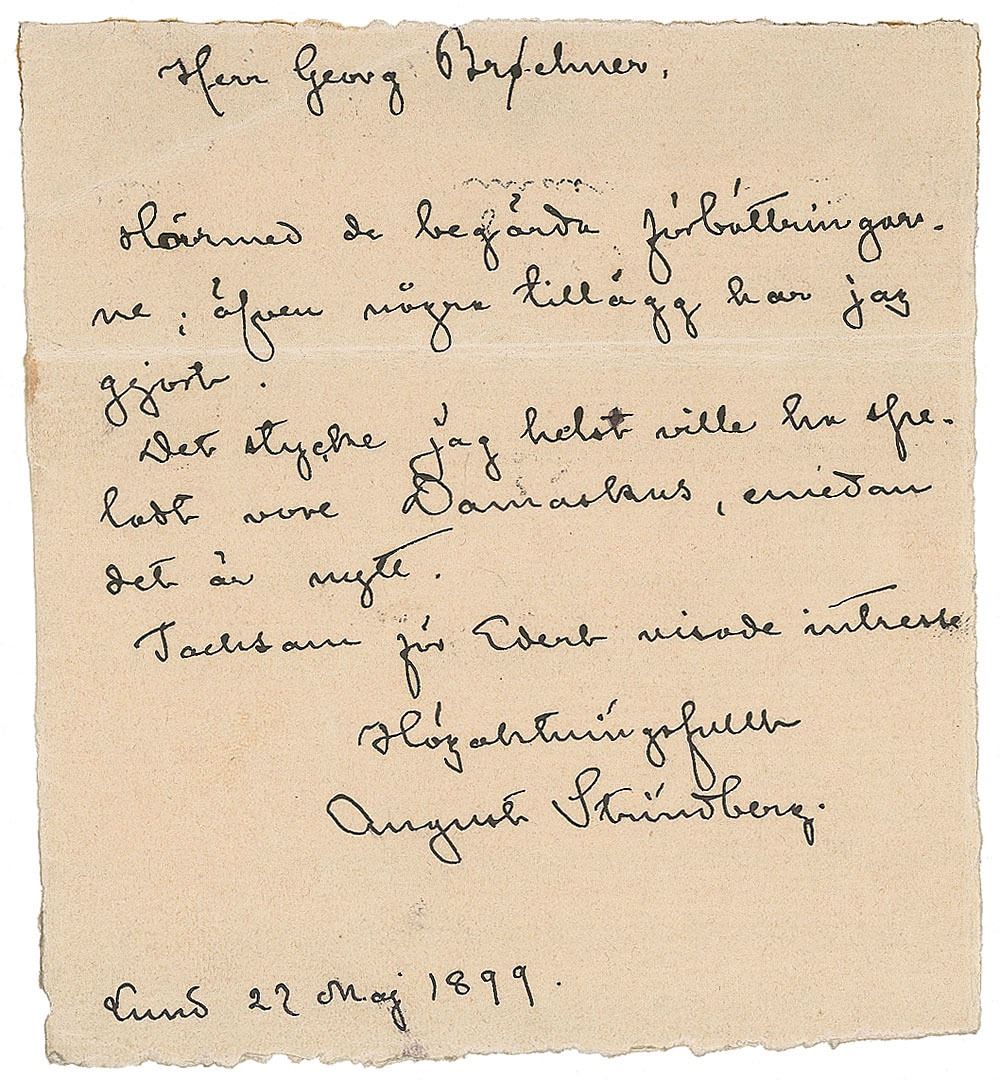 Herr Georg Brøchner,
Härmed de begärda förbättringar-
ne; äfven några tillägg har jag
gjort.
Det stycke jag helst ville ha spe-
ladt vore Damaskus, emedan
det är nytt.
Tacksam för Edert visade intresse
Högaktningsfullt
August Strindberg.
Lund 22 Maj 1899.